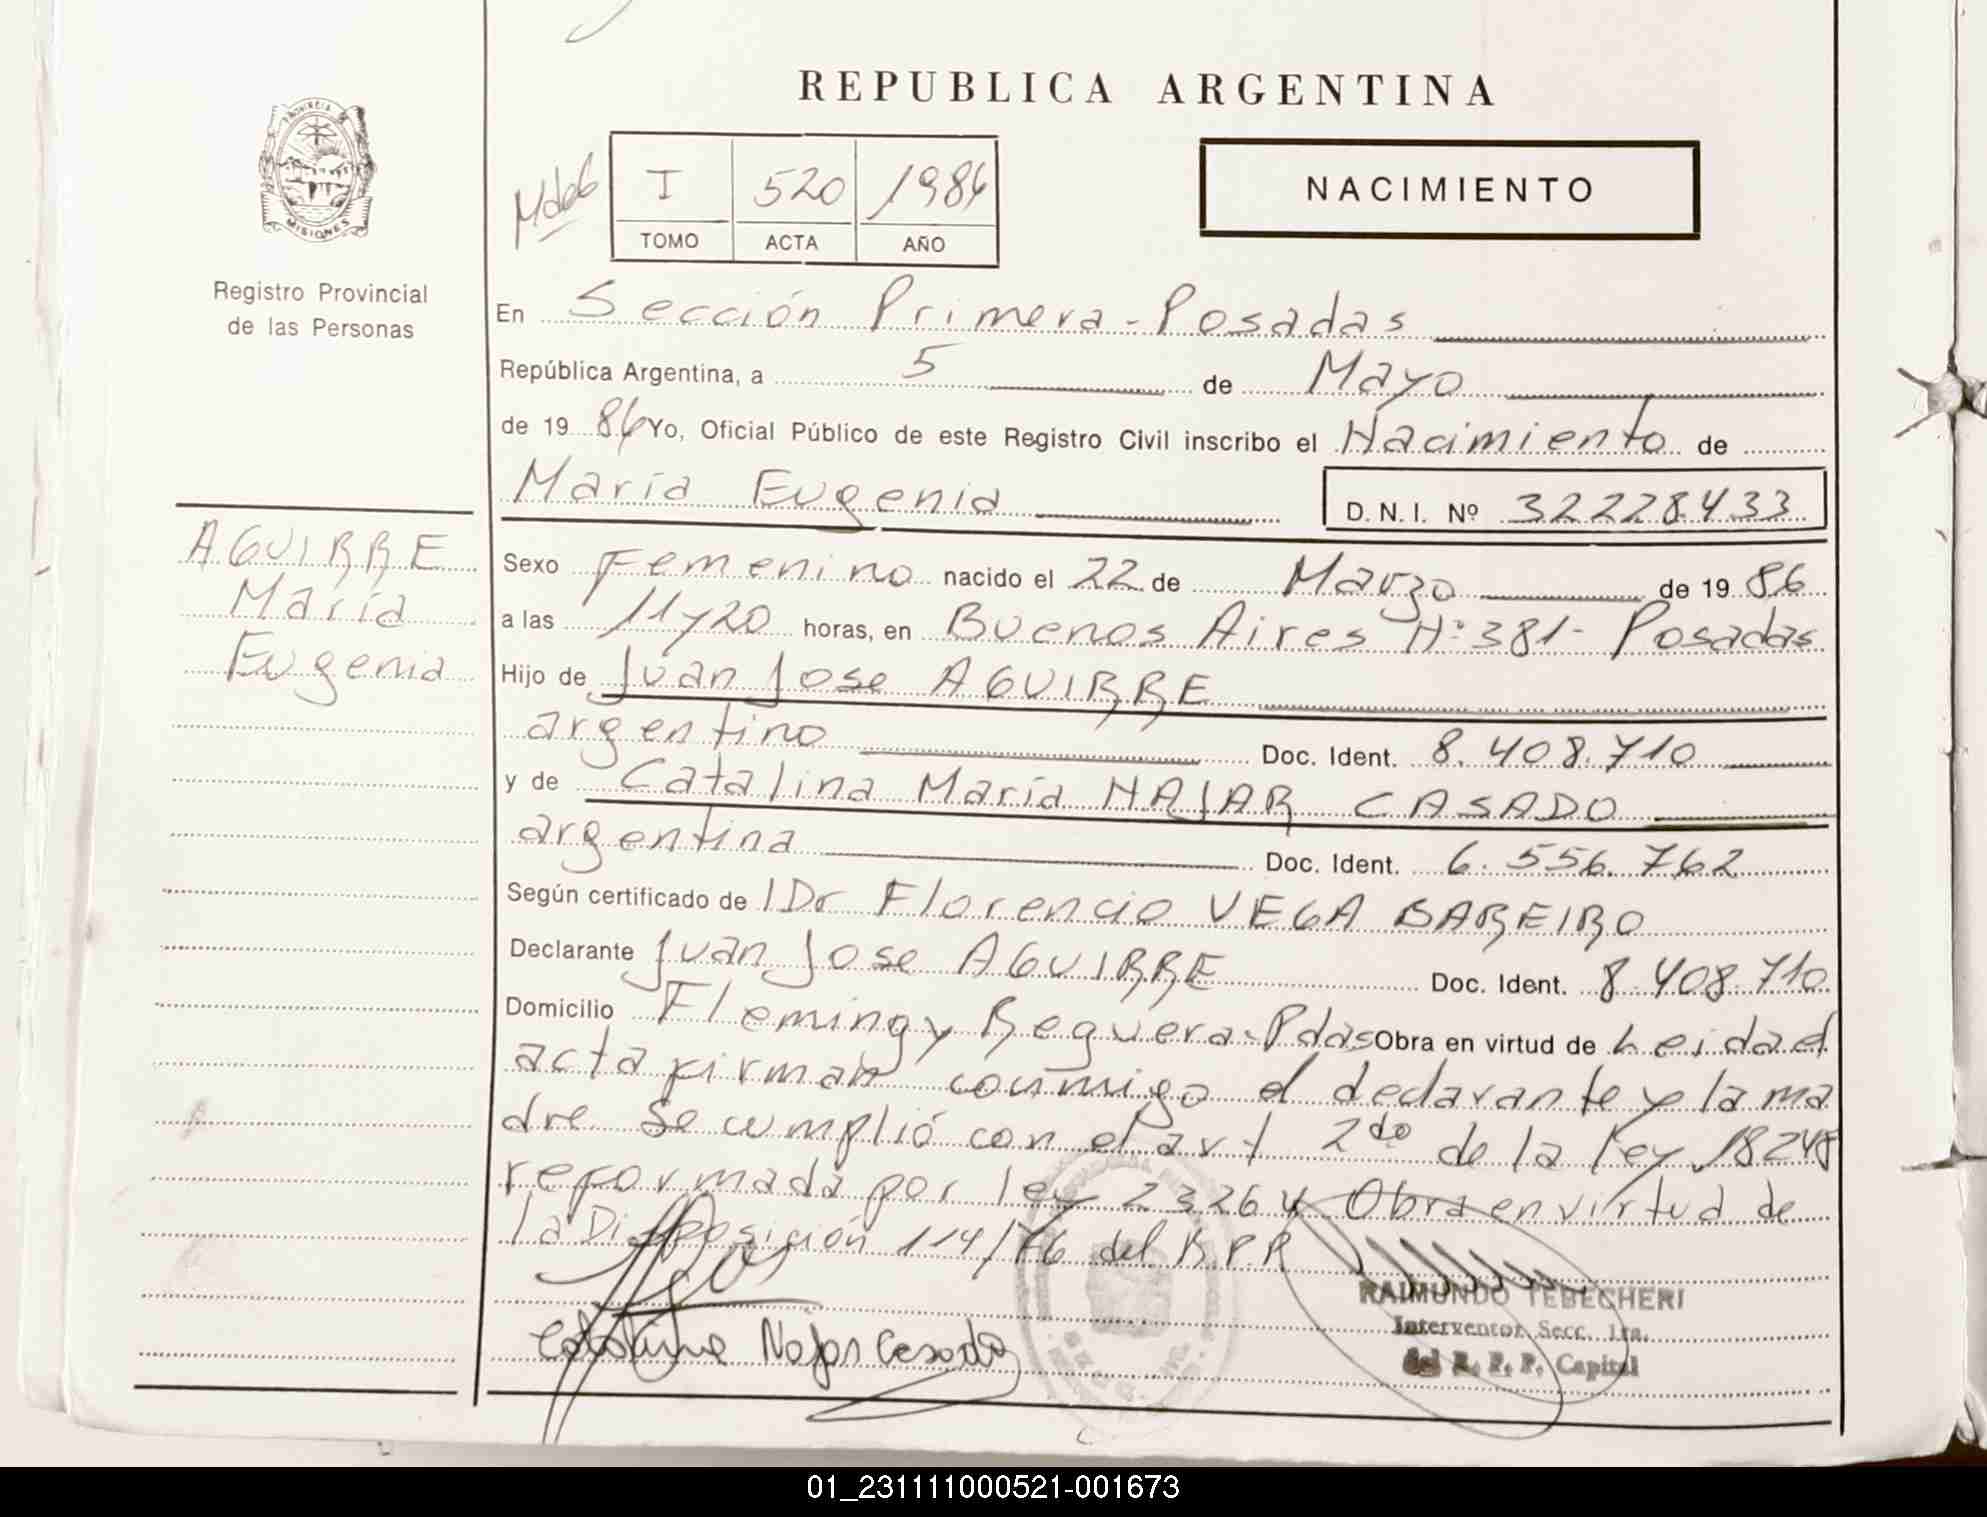 REPUBLICA ARGENTINA
PROVINCIA DE
MISIONES
Registro Provincial
de las Personas
I 520 1986
TOMO ACTA AÑO
NACIMIENTO
En Sección Primera - Posadas
República Argentina, a 5 de Mayo
de 19 86 Yo, Oficial Público de este Registro Civil inscribo el Nacimiento de
María Eugenia D.N.I. Nº 32228433
AGUIRRE
María
Eugenia
Sexo Femenino nacido el 22 de Marzo de 19 86
a las 11 y 20 horas, en Buenos Aires Nº 381 - Posadas
Hijo de Juan Jose AGUIRRE
argentino Doc. Ident. 8.408.710
y de Catalina María NAJAR CASADO
argentina Doc. Ident. 6.556.762
Según certificado de Dr Florencio VEGA BAREIRO
Declarante Juan Jose AGUIRRE Doc. Ident. 8.408.710
Domicilio Fleming y Reguera - Pdas Obra en virtud de Leida el
acta firman conmigo el declarante y la ma
dre. Se cumplió con el art 2do de la ley 18248
reformada por ley 23264 Obra en virtud de
la Disposición 114/76 del R.P.P.
Catalina Najar Casado
RAIMUNDO TEBECHERI
Interventor Secc. 1ra.
del R. P. P. Capital
01_231111000521-001673